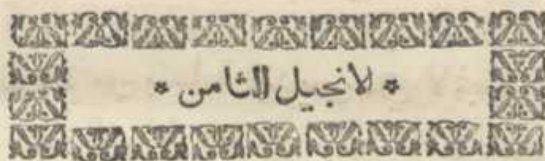 * لانجيل الثامن *